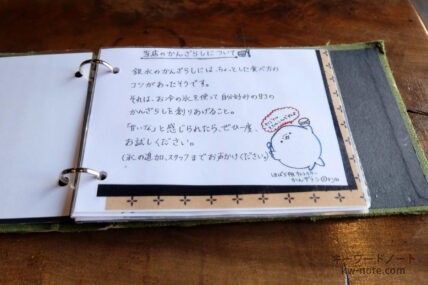 当店のかんざらしについて
銀水のかんざらしには、ちょっとした食べ方の
コツがあったそうです。
それは、お冷の氷を使って自分好みの甘さの
かんざらしを創りあげること。
「甘いな」と感じられたら、ぜひ一度、
お試しください。
(氷の追加、スタッフまでお声かけください)
キーワードノート
kw-note.com